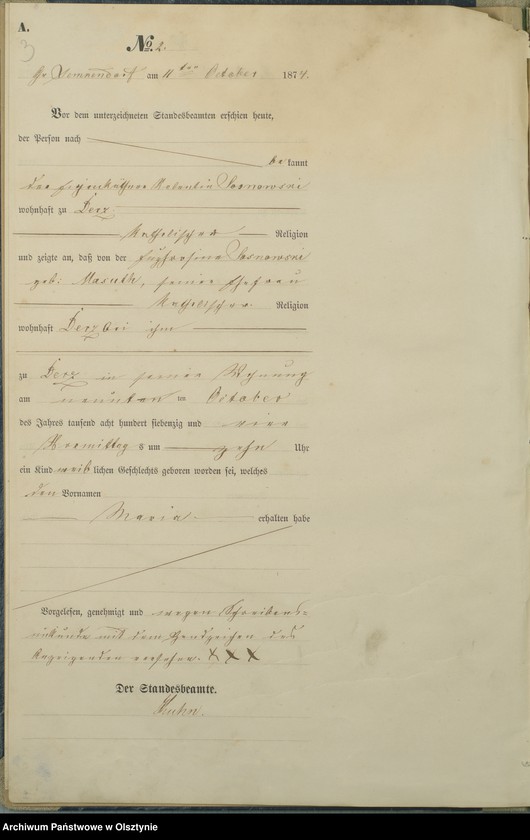 A.
3
No. 2.
Gr. Lemkendorf am 11ten October 1874.
Vor dem unterzeichneten Standesbeamten erschien heute,
der Person nach
be kannt
der Eigenkäthner Valentin Sosnowski
wohnhaft zu Derz
katholischer Religion
und zeigte an, daß von der Euphrosine Sosnowski
geb: Masuth, seiner Ehefrau
katholischer Religion
wohnhaft Derz bei ihm
zu Derz in seiner Wohnung
am neunten ten October
des Jahres tausend acht hundert siebenzig und vier
Vormittags um zehn Uhr
ein Kind weiblichen Geschlechts geboren worden sei, welches
den Vornamen
Maria erhalten habe
Vorgelesen, genehmigt und wegen Schreibens-
unkunde mit dem Handzeichen des
Anzeigenden versehen. XXX
Der Standesbeamte.
Kuhn.
Archiwum Państwowe w Olsztynie